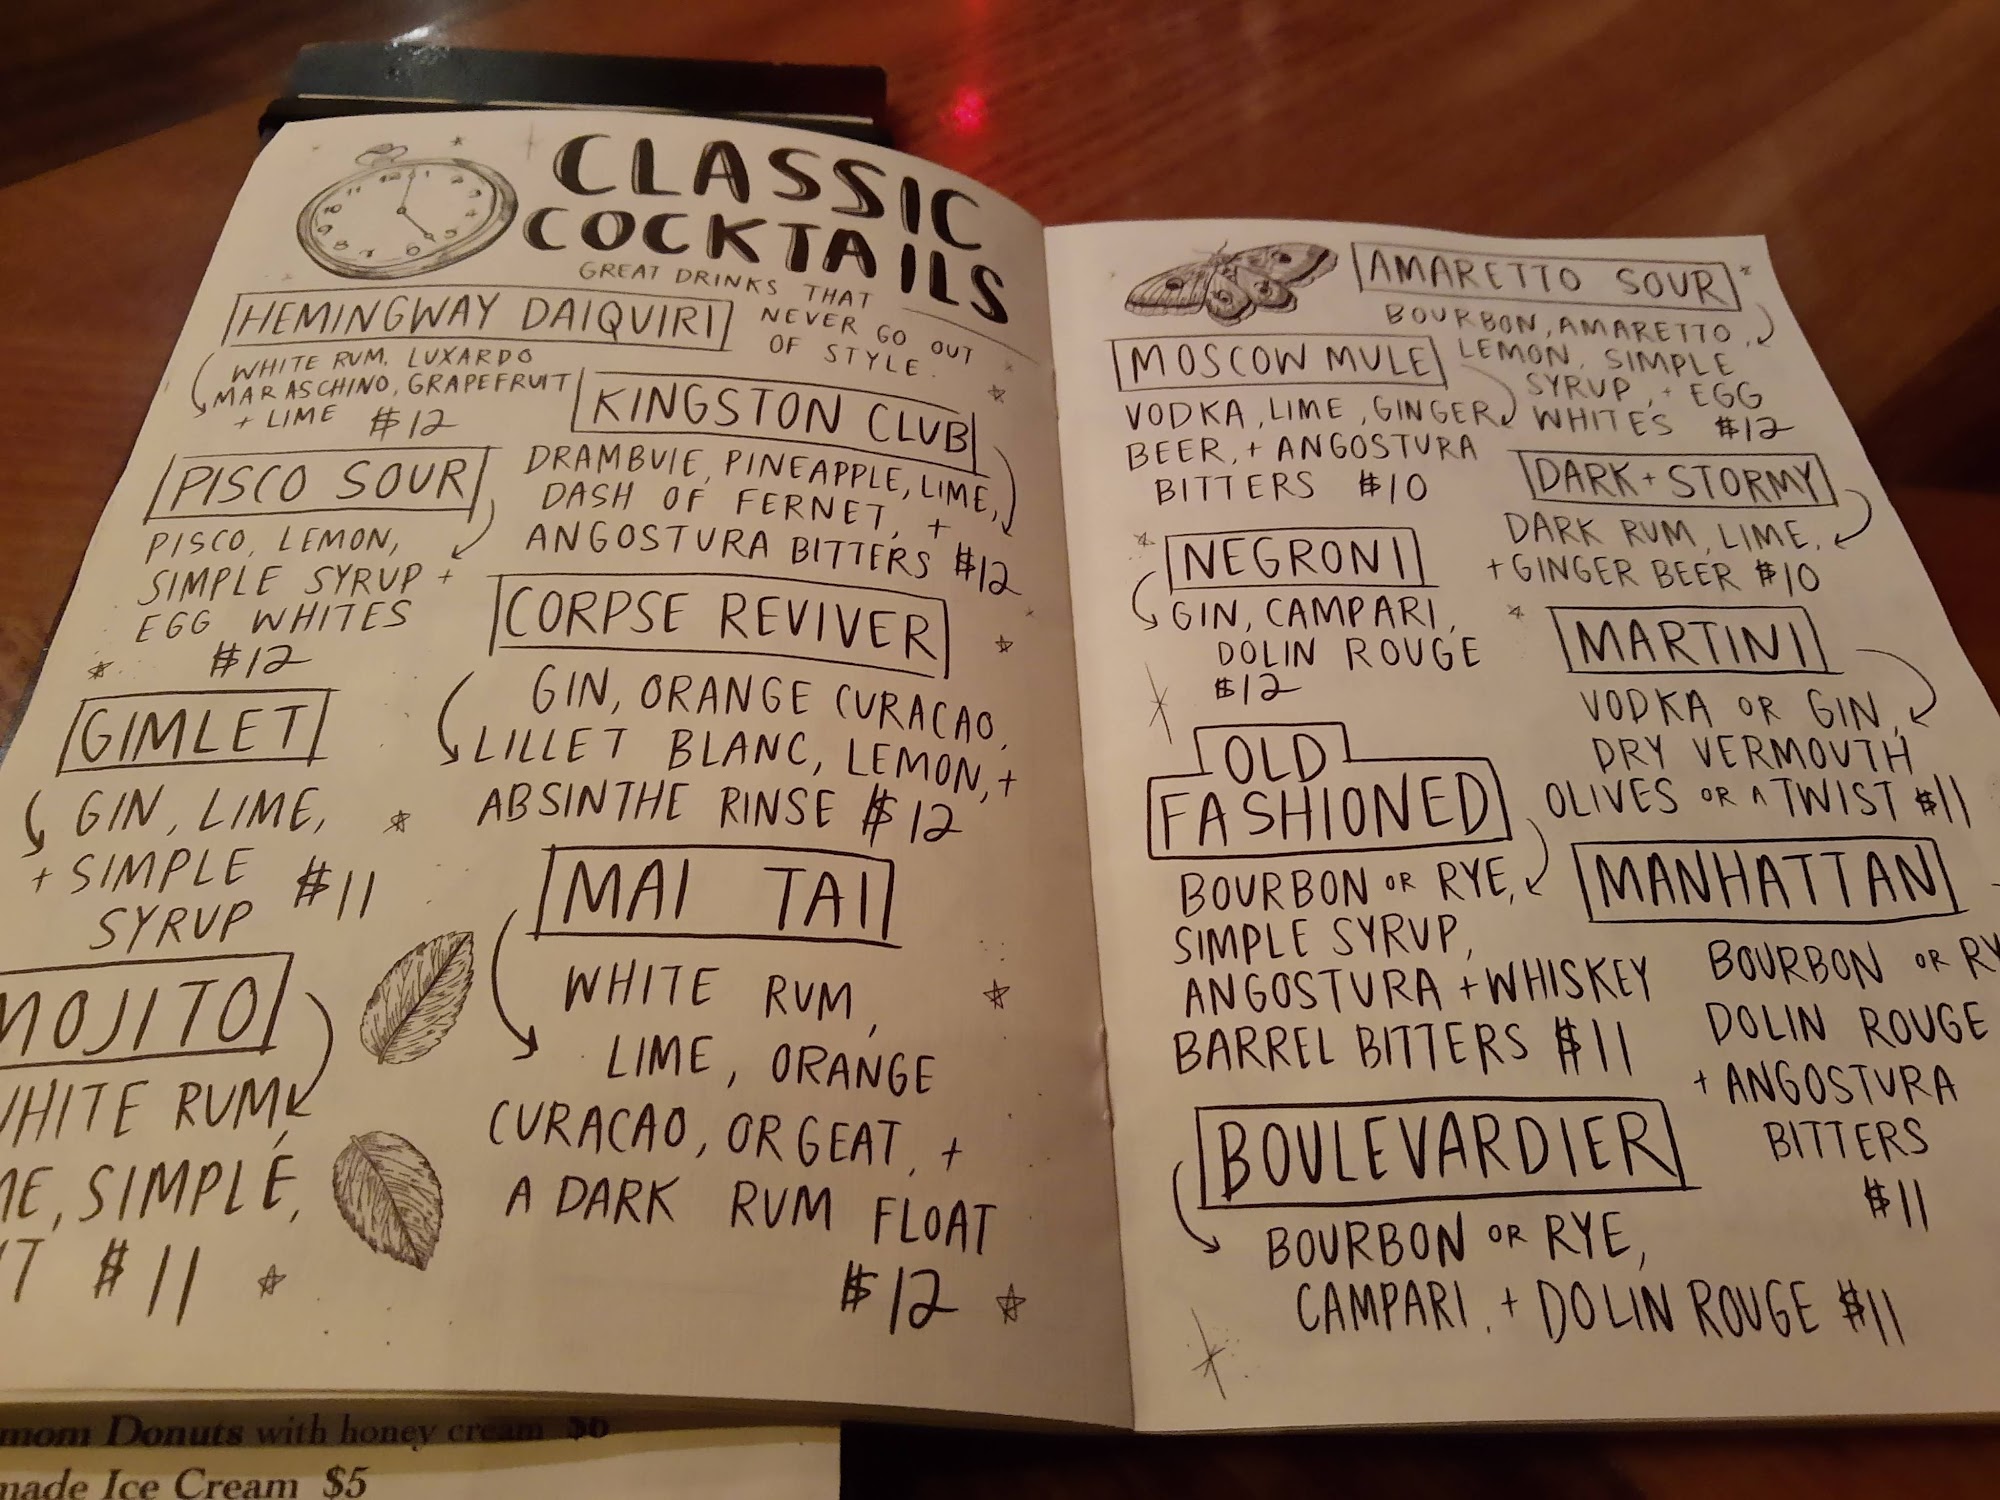 CLASSIC
COCKTAILS
GREAT DRINKS THAT
NEVER GO OUT
OF STYLE.
HEMINGWAY DAIQUIRI
WHITE RUM, LUXARDO
MARASCHINO, GRAPEFRUIT
+ LIME $12
KINGSTON CLUB
DRAMBUIE, PINEAPPLE, LIME,
DASH OF FERNET, +
ANGOSTURA BITTERS $12
PISCO SOUR
PISCO, LEMON,
SIMPLE SYRUP +
EGG WHITES
$12
CORPSE REVIVER
GIN, ORANGE CURACAO,
LILLET BLANC, LEMON, +
ABSINTHE RINSE $12
GIMLET
GIN, LIME,
+ SIMPLE
SYRUP $11
MAI TAI
WHITE RUM,
LIME, ORANGE
CURACAO, ORGEAT, +
A DARK RUM FLOAT
$12
MOJITO
WHITE RUM,
ME, SIMPLE,
T $11
AMARETTO SOUR
BOURBON, AMARETTO,
LEMON, SIMPLE
SYRUP, + EGG
WHITES $12
MOSCOW MULE
VODKA, LIME, GINGER
BEER, + ANGOSTURA
BITTERS $10
DARK + STORMY
DARK RUM, LIME,
+ GINGER BEER $10
NEGRONI
GIN, CAMPARI,
DOLIN ROUGE
$12
MARTINI
VODKA OR GIN,
DRY VERMOUTH
OLIVES OR A TWIST $11
OLD
FASHIONED
BOURBON OR RYE,
SIMPLE SYRUP,
ANGOSTURA + WHISKEY
BARREL BITTERS $11
MANHATTAN
BOURBON OR RY
DOLIN ROUGE
+ ANGOSTURA
BITTERS
$11
BOULEVARDIER
BOURBON OR RYE,
CAMPARI, + DOLIN ROUGE $11
mom Donuts with honey cream $6
made Ice Cream $5